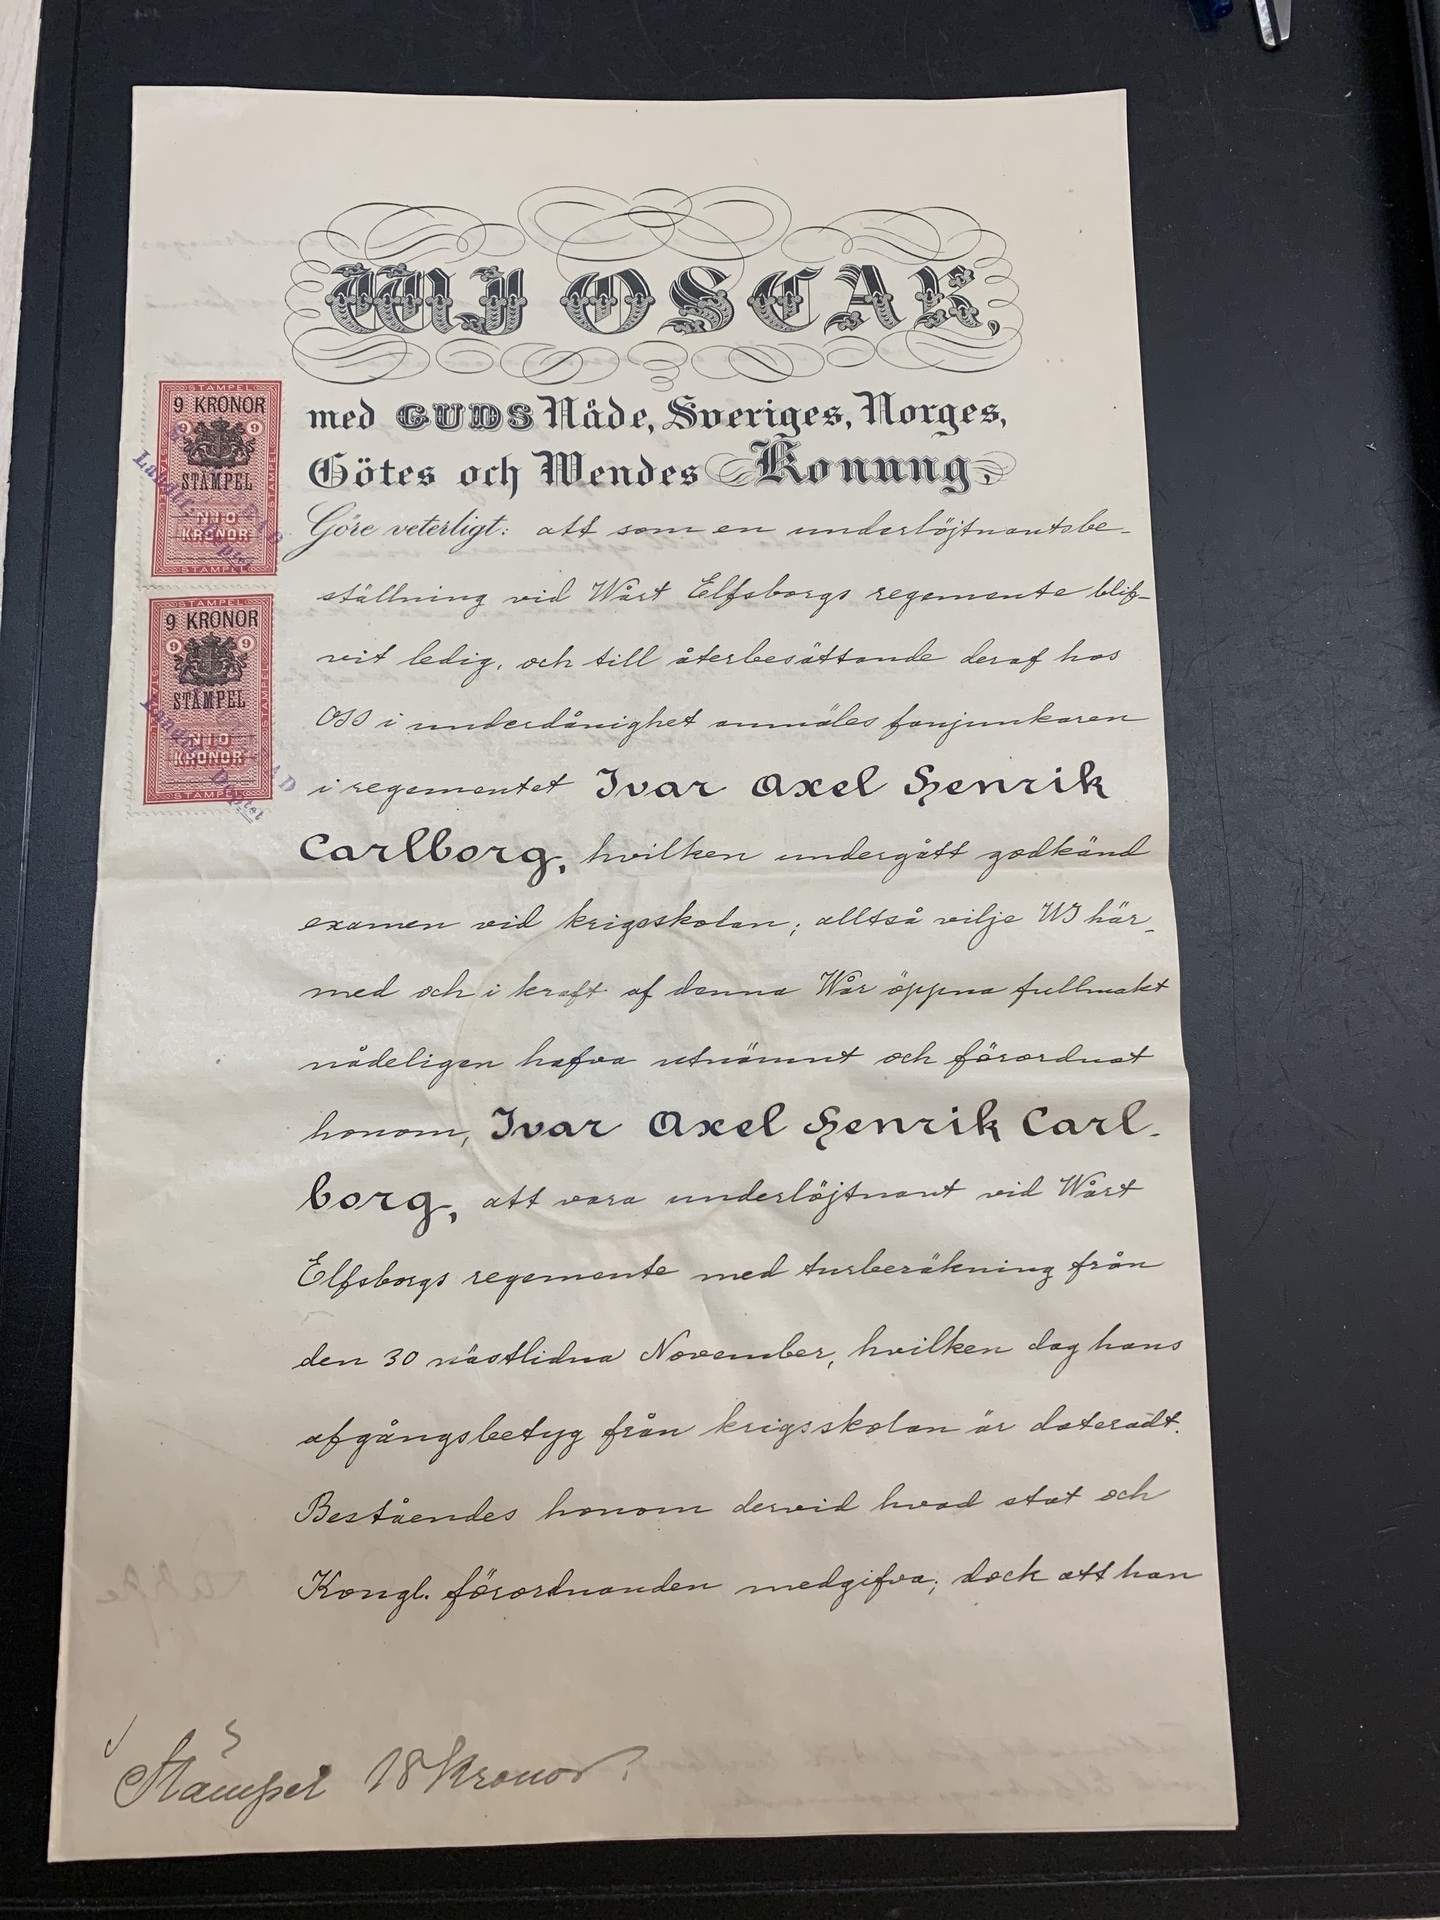 WIJ OSCAR,
med GUDS Nåde, Sveriges, Norges,
Götes och Wendes Konung,
Göre veterligt: att som en underlöjtnantsbe-
ställning vid Wårt Elfsborgs regemente blif-
vit ledig, och till återbesättande deraf hos
OSS i underdånighet anmäles fanjunkaren
i regementet Ivar Axel Henrik
Carlborg, hvilken undergått godkänd
examen vid krigsskolan; alltså vilje WI här-
med och i kraft af denna Wår öppna fullmakt
nådeligen hafva utnämnt och förordnat
honom, Ivar Axel Henrik Carl-
borg, att vara underlöjtnant vid Wårt
Elfsborgs regemente med turberäkning från
den 30 nästlidna November, hvilken dag hans
afgångsbetyg från krigsskolan är dateradt.
Beståendes honom dervid hvad stat och
Kongl. förordnanden medgifva; dock att han
Stämpel 18 Kronor.
STÄMPEL
9 KRONOR
9 9
STÄMPEL
NIO
KRONOR
STÄMPEL
STÄMPEL
9 KRONOR
9 9
STÄMPEL
NIO
KRONOR
STÄMPEL